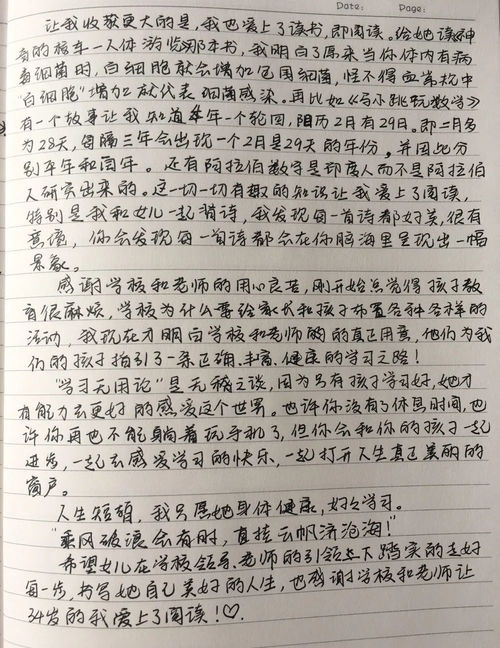 Date: Page:
让我收获更大的是，我也爱上了读书，即阅读。给她读神
奇的校车—人体游览那本书，我明白了原来当你体内有病
毒细菌时，白细胞就会增加包围细菌，怪不得血常规中
"白细胞"增加就代表细菌感染。再比如《马小跳玩数学》
有一个故事让我知道4年一个轮回，阳历2月有29日。即二月多
为28天，每隔三年会出现一个2月是29天的年份，并因此分
别平年和闰年。还有阿拉伯数字是印度人而不是阿拉伯
人研究出来的。这一切一切有趣的知识让我爱上了阅读，
特别是我和女儿一起背诗，我发现每一首诗都好美，很有
意境，你会发现每一首诗都会在你脑海里呈现出一幅
景象。
感谢学校和老师的用心良苦，刚开始总觉得孩子教
育很麻烦，学校为什么要给家长和孩子布置各种各样的
活动，我现在才明白学校和老师的的真正用意，他们为我
们的孩子指引了一条正确、丰富、健康的学习之路！
"学习无用论"是无稽之谈，因为只有孩子学习好，她才
有能力去更好的感爱这个世界。也许你没有了休息时间，也
许你再也不能躺着玩手机了，但你会和你的孩子一起
进步，一起去感爱学习的快乐，一起打开人生真正美丽的
窗户。
人生短暂，我只愿她身体健康，好好学习。
"乘风破浪会有时，直挂云帆济沧海！"
希望女儿在学校领导、老师的引领之下踏实的走好
每一步，书写她自己美好的人生，也感谢学校和老师让
34岁的我爱上了阅读！♡.